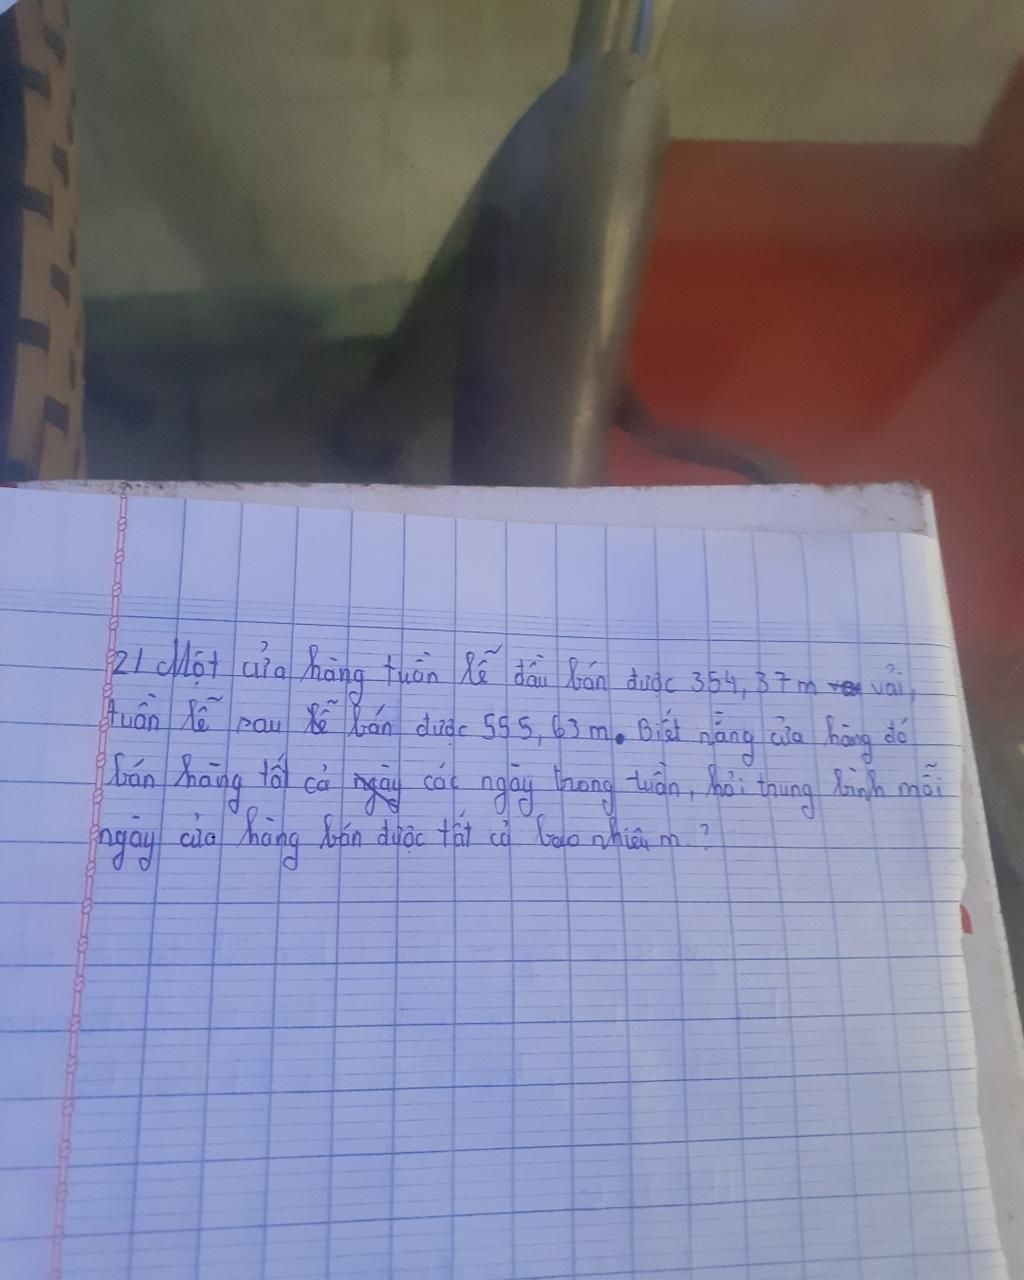 2/ Một cửa hàng tuần lễ đầu bán được 354,37m vải,
tuần lễ sau lễ bán được 595,63m. Biết rằng cửa hàng đó
bán hàng tất cả ngày các ngày trong tuần, hỏi trung bình mỗi
ngày cửa hàng bán được tất cả bao nhiêu m?